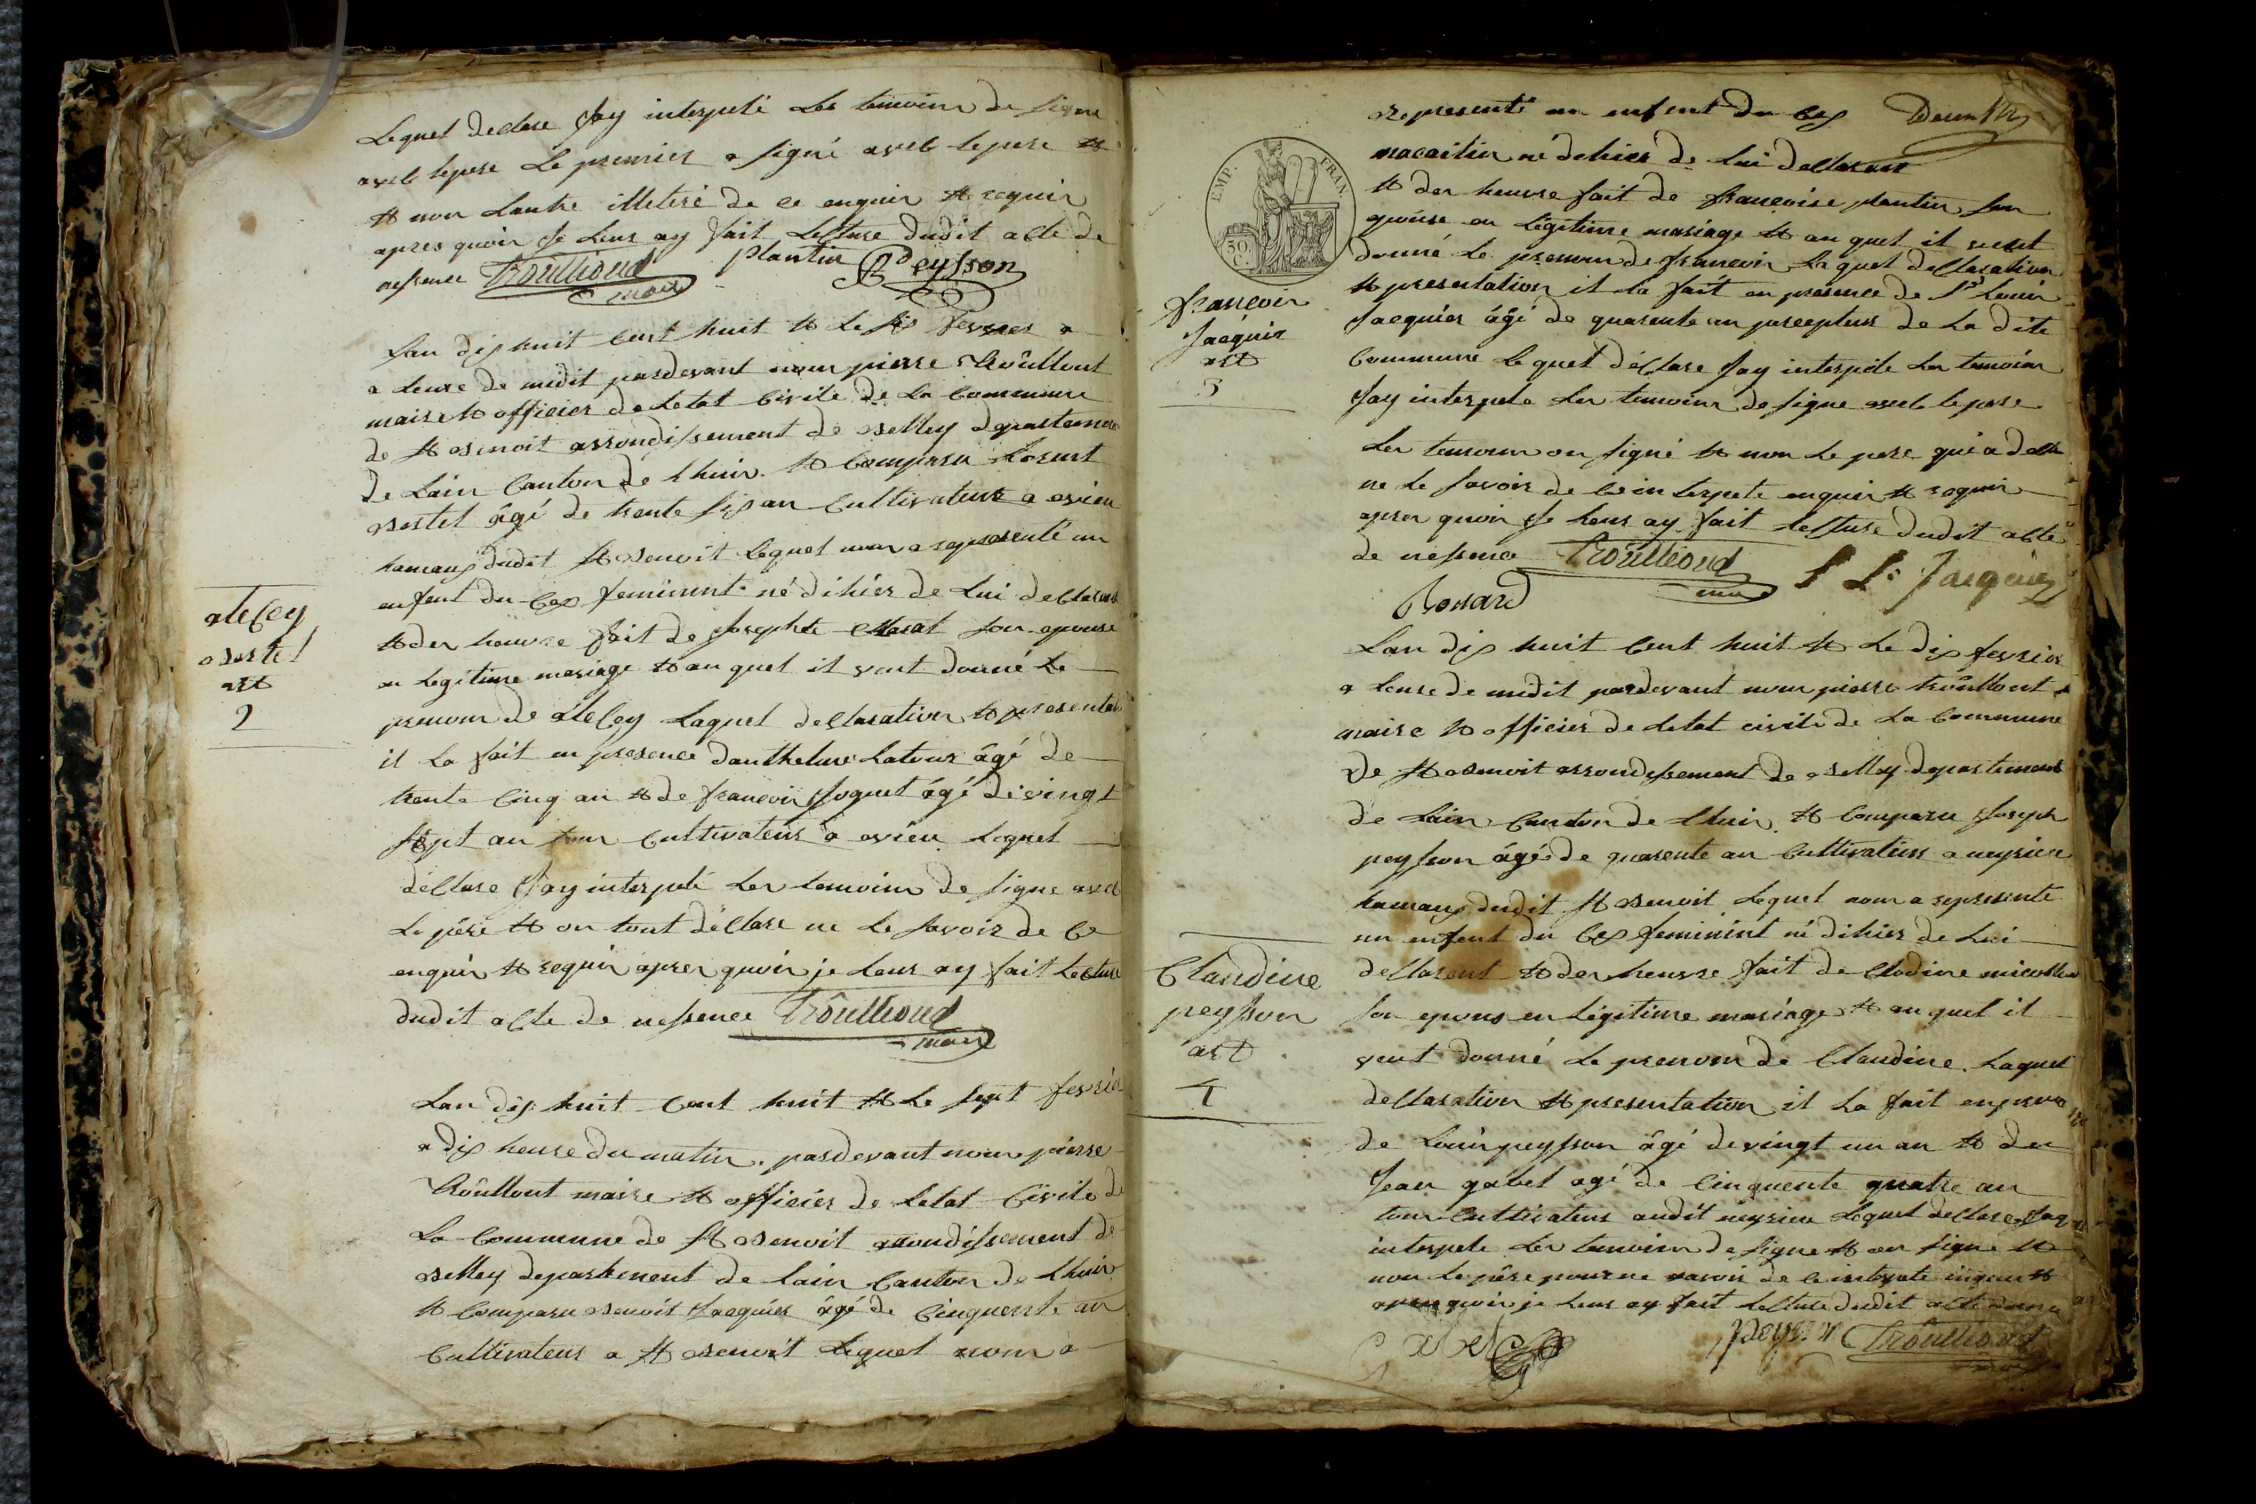 Lequel declare Jay interpelé Les temoins de signe
avec le pere Le premier a signé avec le pere et
et non Lautre illeteré de ce enquir et requir
apres quoir Je Leur ay fait Lecture dudit acte de
nessence Troullioud maire plantin B Peysson
Lan dix huit cent huit et Le six fevrier a
a Leure de midit pardevant nour pierre Troûlliout
maire et officier de Letat Civile de La Commune
de St Benoit arrondissement de Belley departement
de Lain Canton de Lhuir et Comparu Lorent
Bertet âgé de trente six an Cultivateur a evieu
hamaux dudit St Benoit Lequel nour a representé un
enfent du Cex feminint né dihier de Lui declarent
et der heuvre fait de Josephte Marat son epouse
en Legitime mariage et au quel il veut donné Le
prenom de aleCey Laquel declaration et presentation
il La fait en presence dauthelme Latour âgé de
trente Cinq an et de francoir Joguet âgé de vingt
sept an tour Cultivateur a evieu Lequel
déClare Jay interpelé Ler temoins de signe avec
Le pére et on tout déClare ne Le savoir de Ce
enquir et requir aprer quoir je Leur ay fait Lecture
dudit acte de nessence Troullioud maire
aleCey
Bertet
art
2
Lan dix huit Cent huit et Le sept fevrier
a dix heure du matin pardevant nour pierre
Troûlliout maire et officier de Letat Civile de
La Commune de St Benoit arrondissement de
Belley departement de Lain Canton de Lhuir
et Comparu Benoit Jacquier âgé de Cinquente an
Cultivateur a St Benoit Lequel nour a
representé un enfent du Cex
macculin né dehier de Lui declarent
et der heuvre fait de francoise plantin son
epouse en Legitime mariage et au quel il veut
donné Le prenom de francoir Laquel declaration
et presentation il La fait en presence de Sr Louir
Jacquier âgé de quarente an percepteur de La dite
Commune Lequel déClare Jay interpele Ler temoins
Jay interpele Ler temoins de signe avec le pere
Ler temoins on signé et non Le pere qui a declare
ne Le savoir de Ce interpele enquir et requir
aprer quoir Je Leur ay fait Lecture dudit acte
de nessence Troullioud maire J Ls Jacquier
Bonard
EMP. FRAN
50 C.
francoir
Jacquir
art
3
Lan dix huit Cent huit et Le dix fevrier
a Leure de midit pardevant nour pierre troûlliout
maire et officier de Letat civile de La Commune
de St Benoit arrondissement de Belley departement
de Lain Canton de Lhuir et Comparu Joseph
peysson âgé de quarente an Cultivateur a meyrieu
hamaux dudit St Benoit Lequel nour a represente
un enfent du Cex feminint né dihier de Lui
declarent et der heuvre fait de Clodine
son epous en Legitime mariage et au quel il
veut donné Le prenom de Claudine Laquel
declaration et presentation il La fait en
de Louir peysson âgé de vingt un an et de
Jean gabet agé de Cinquente quatre an
tour Cultivateur audit meyrieu Lequel declare Jay
interpele Ler temoins de signe et on signe et
non Le pére pour ne savoir de Ce interpele enquir et
aprer quoir je Leur ay fait Lecture dudit acte
peysson Troullioud maire
Claudine
peysson
art
4